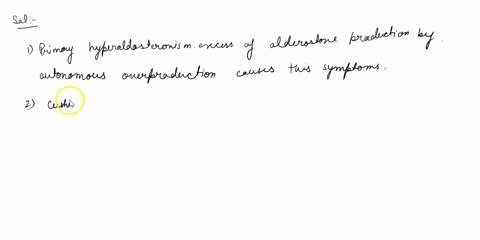 Sol:-
1) Primary hyperaldosteronism. excess of alderostone production by
autonomous overproduction causes this symptoms.
2) cushi